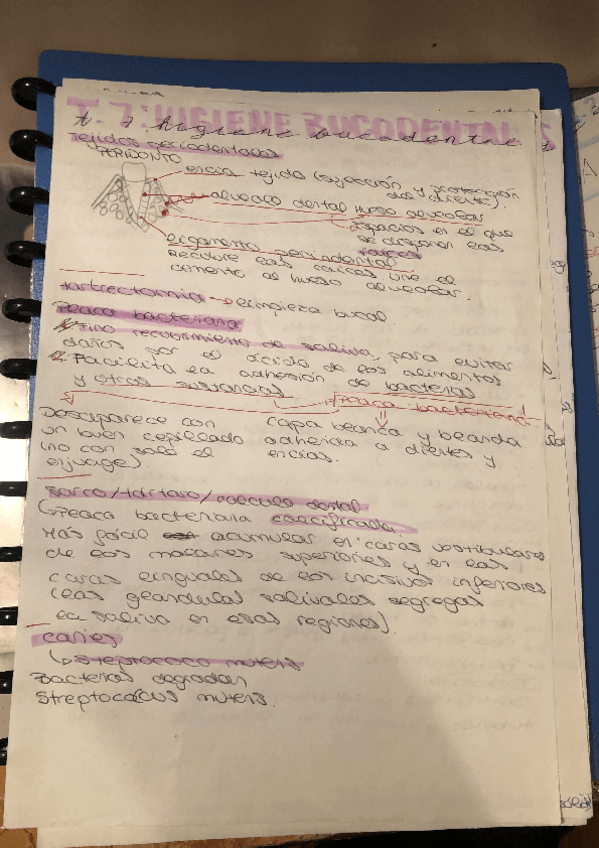 T.7: HIGIENE BUCODENTAL
t. 7. higiene bucodental
Tejidos periodentados
PERIDONTO
encia tejido (sujección y protección
del diente)
alveolo dental hueso alveolar
espacios en el que
se disponen las
raices
ligamento periodental
Recubre las raíces une el
cemento al hueso alveolar.
tartrectomia → limpieza bucal
Placa bacteriana
fino recubrimiento de saliva, para evitar
daños por el ácido de los alimentos
2. Facilita la adhesión de bacterias
y otras sustancias
Placa bacteriana
Desaparece con
un buen cepillado
(no con solo el
enjuage)
capa blanca y blanda
adherida a dientes y
encias.
Sarro/tártaro/calculo dental
Placa bacteriana calcificada.
Más fácil acumular en caras vestibulares
de los molares superiores y en las
caras linguales de los incisivos inferiores
(las glandulas salivales segregas
la saliva en esas regiones)
caries
Streptococo mutens
Bacterias degradan
Streptococcus mutens.